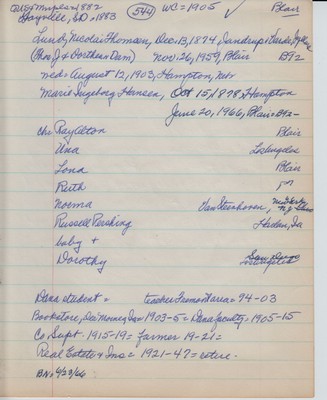 1882
Gayville, SD = 1883 (544) WC = 1905 ✓ Blair
Lund, Nicolai Thomsen, Dec. 13, 1874, Sandrup
Nov. 26, 1959, Blair B92
med = August 12, 1903, Hampton, Nebr
Marie Ingeborg Hansen, Oct 15, 1878, Hampton
June 20, 1966, Blair B92-
chr Ray Alton Blair
Una Los Angeles
Lona Blair
Ruth "
Norma Van Steenhoven,
Russell Pershing Harlan, Ia
baby +
Dorothy
Dana student = teacher Fremont area = 94-03
Bookstore, Des Moines, Ia = 1903-5 = Dana faculty = 1905-15
Co Supt. 1915-19 = farmer 19-21 =
Real Estate & Ins = 1921-47 = retire.
BN: 6/23/66